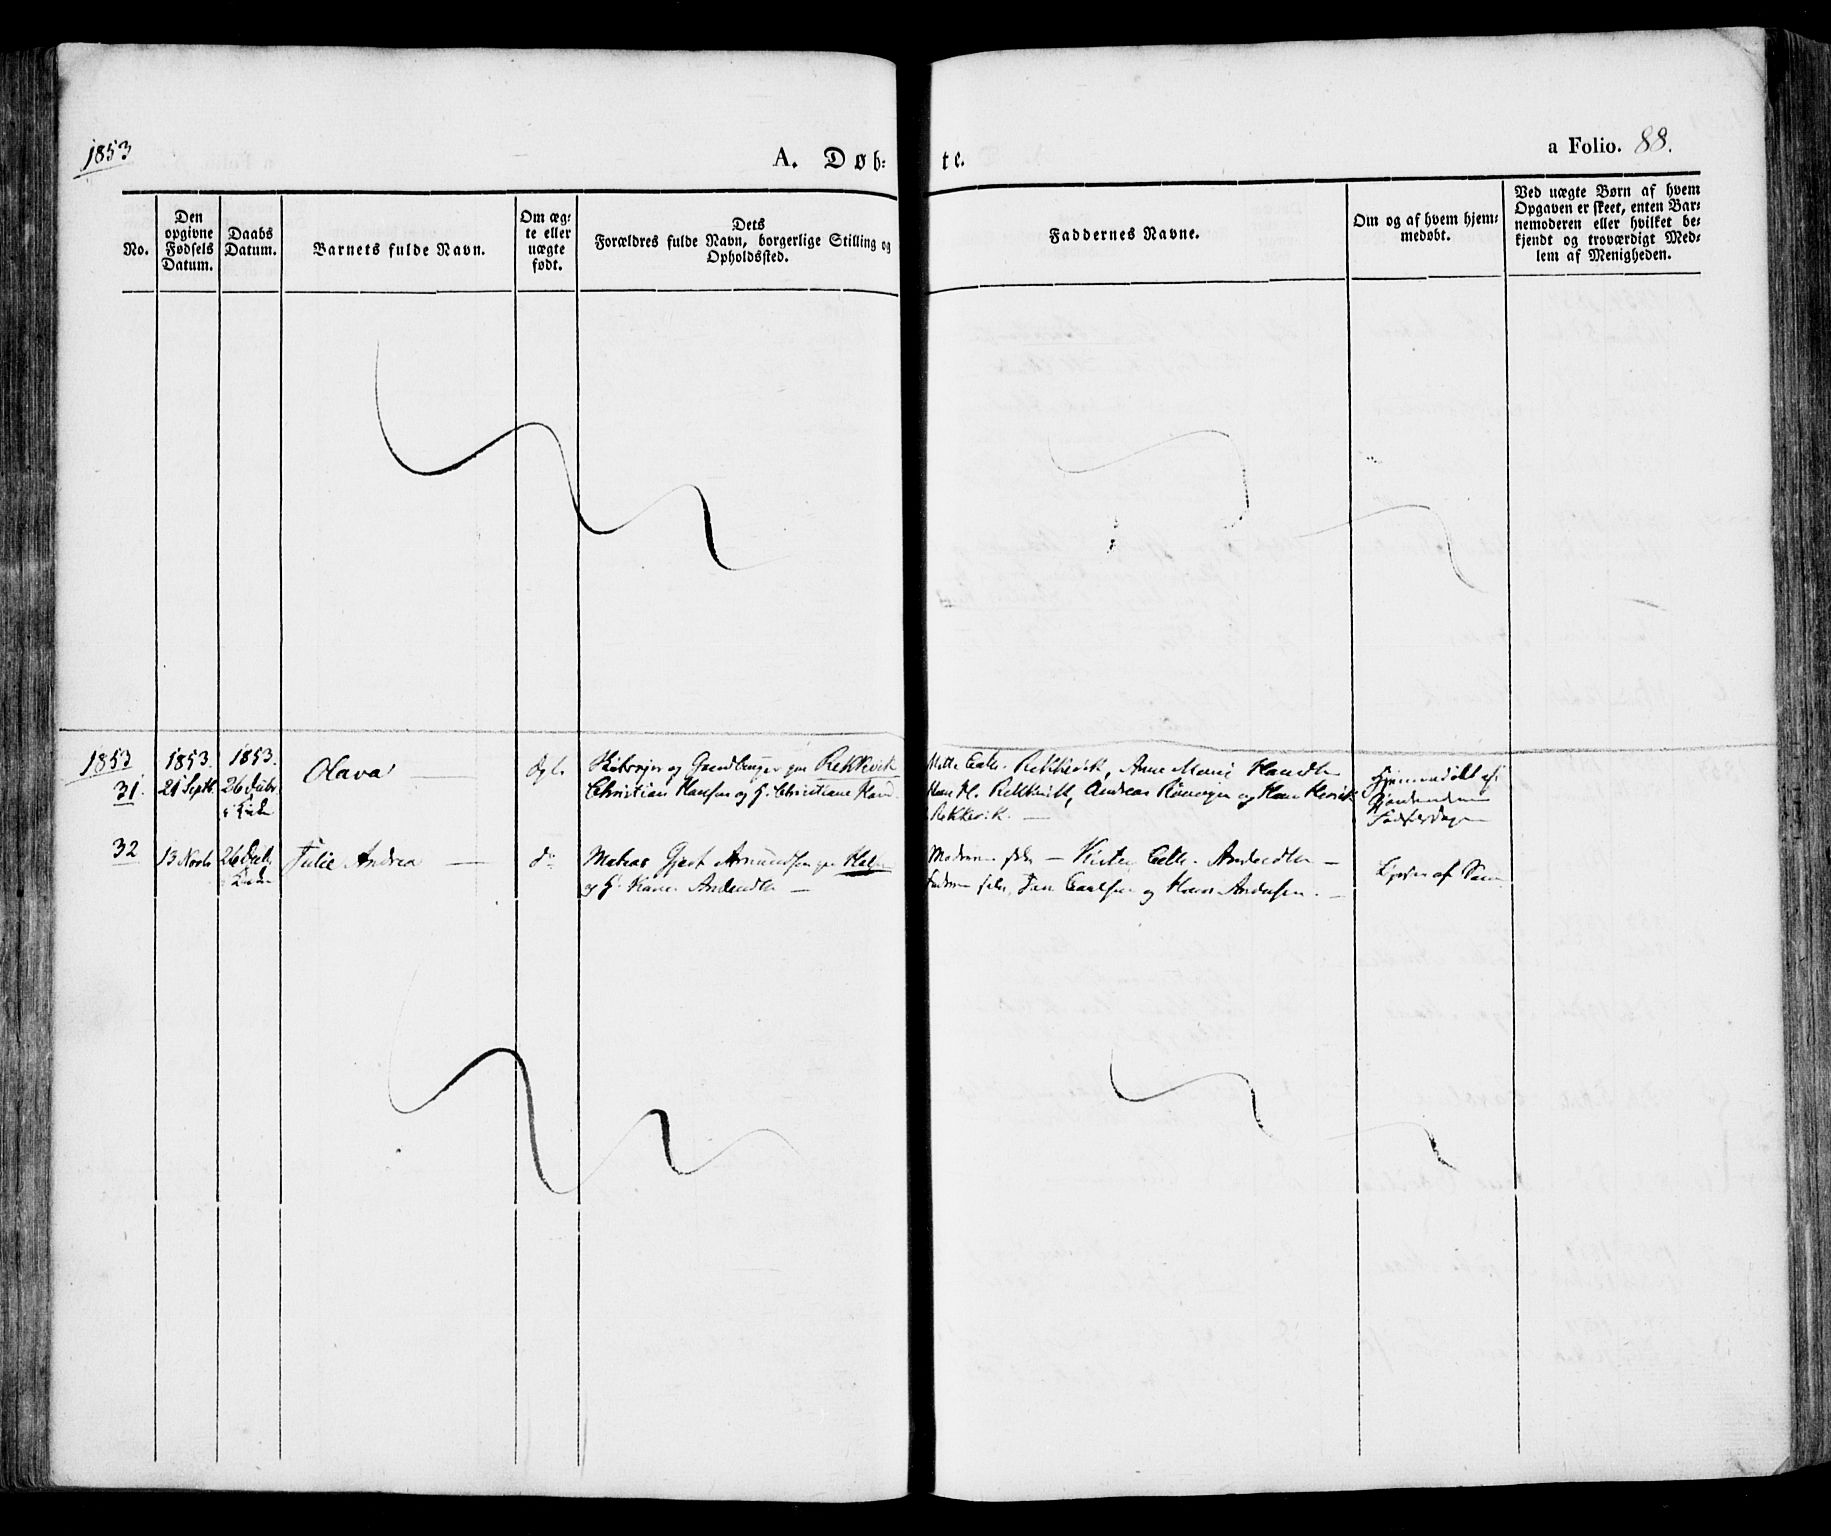 1853
A. Døb-
te.
a Folio. 88.
No.
Den
opgivne
Fødsels
Datum.
Daabs
Datum.
Barnets fulde Navn.
Om æg-
te eller
uægte
født.
Dets
Forældres fulde Navn, borgerlige Stilling og
Opholdssted.
Faddernes Navne.
Om og af hvem hjem-
medøbt.
Ved uægte Børn af hvem
Opgaven er skeet, enten Bar-
nemoderen eller hvilket be-
kjendt og troværdigt Med-
lem af Menigheden.
1853
31.
1853.
21 Septb.
1853.
26 Decbr.
i Kirken
Olava
Ægte
og Gaardbruger paa Rekkevik
Christian Hansen og H. Christiane Hansd.
Mette Cath. Rekkevik, Anne Marie Hansdtr
Hans H. Rekkevik, Andreas og Hans Henrik
Rekkevik.
Hjemmedøbt af
Fødselsdagen
32
13 Novbr
26 Decbr.
i Kirken
Julie Andrea
do
Matros Gjert Asmundsen paa
og H. Karen Andersdtr
Moderen selv - Kirsten Cath. Andersdtr -
Faderen selv, Jan Carlsen og Hans Andersen.
af Samme